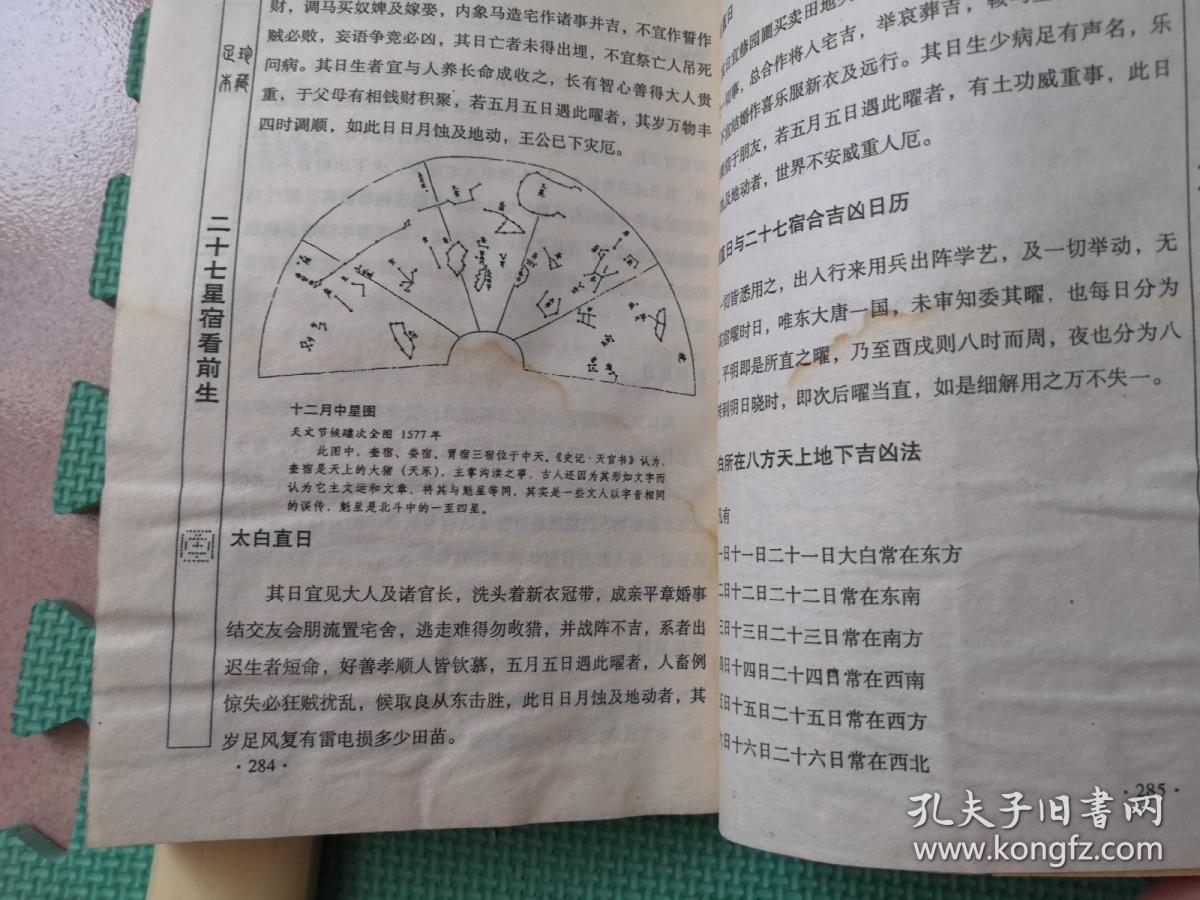 财，调马买奴婢及嫁娶，内象马造宅作诸事并吉，不宜作誓作
贼必败，妄语争竞必凶，其日亡者未得出埋，不宜祭亡人吊死
问病。其日生者宜与人养长命成收之，长有智心善得大人贵
重，于父母有相钱财积聚，若五月五日遇此曜者，其岁万物丰
四时调顺，如此日日月蚀及地动，王公已下灾厄。
二十七星宿看前生
十二月中星图
天文节候躔次全图 1577年
此图中，奎宿、娄宿、胃宿三宿位于中天。《史记·天官书》认为，
奎宿是天上的大猪（天豕），主掌沟渎之事，古人还因为其形如文字而
认为它主文运和文章，将其与魁星等同，其实是一些文人以字音相同
的误传，魁星是北斗中的一至四星。
太白直日
其日宜见大人及诸官长，洗头着新衣冠带，成亲平章婚事
结交友会朋流置宅舍，逃走难得勿畋猎，并战阵不吉，系者出
迟生者短命，好善孝顺人皆钦慕，五月五日遇此曜者，人畜例
惊失必狂贼扰乱，候取良从东击胜，此日日月蚀及地动者，其
岁足风复有雷电损多少田苗。
·284·
直日
日宜修园圃买卖田地
事，总合作将人宅吉，举哀葬吉，鞍马
结婚作喜乐服新衣及远行。其日生少病足有声名，乐
信于朋友，若五月五日遇此曜者，有土功威重事，此日
及地动者，世界不安威重人厄。
直日与二十七宿合吉凶日历
切皆悉用之，出人行来用兵出阵学艺，及一切举动，无
宿曜时日，唯东大唐一国，未审知委其曜，也每日分为
平明即是所直之曜，乃至酉戌则八时而周，夜也分为八
到明日晓时，即次后曜当直，如是细解用之万不失一。
白所在八方天上地下吉凶法
凡有
日十一日二十一日大白常在东方
日十二日二十二日常在东南
日十三日二十三日常在南方
日十四日二十四日常在西南
日十五日二十五日常在西方
日十六日二十六日常在西北
·285·
孔夫子旧书网
www.kongfz.com